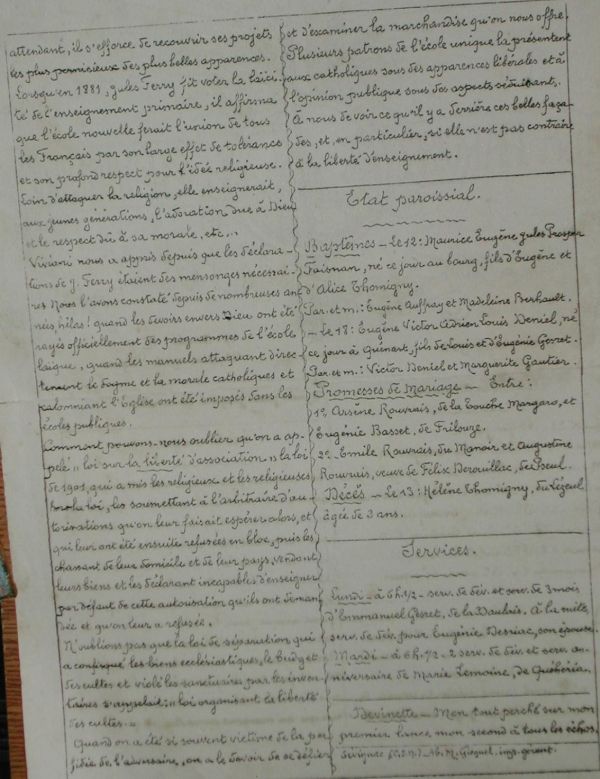 attendant, il s'efforce de recouvrir ses projets
les plus pernicieux des plus belles apparences.
Lorsqu'en 1881, Jules Ferry fit voter la laïci-
té de l'enseignement primaire, il affirma
que l'école nouvelle ferait l'union de tous
les Français par son large effet de tolérance
et son profond respect pour l'idée religieuse.
Loin d'attaquer la religion, elle enseignerait,
aux jeunes générations, l'adoration due à Dieu
et le respect dû à sa morale, etc...
Viviani nous a appris depuis que les déclara-
tions de J. Ferry étaient des mensonges nécessai-
res. Nous l'avons constaté depuis de nombreuses an
nées, hélas! quand les devoirs envers Dieu ont été
rayés officiellement des programmes de l'école
laïque, quand les manuels attaquant direc
tement le dogme et la morale catholiques et
calomniant l'Eglise ont été imposés dans les
écoles publiques.
Comment pouvons-nous oublier qu'on a ap-
pelé "loi sur la liberté d'association" la loi
de 1901, qui a mis les religieux et les religieuses
hors la loi, les soumettant à l'arbitraire d'au-
torisations qu'on leur faisait espérer alors, et
qui leur ont été ensuite refusées en bloc, puis les
chassant de leur domicile et de leur pays, vendant
leurs biens et les déclarant incapables d'enseigner
par défaut de cette autorisation qu'ils ont deman
dée et qu'on leur a refusée.
N'oublions pas que la loi de séparation qui
a confisqué les biens ecclésiastiques, le budget
des cultes et violé les sanctuaires par les inven-
taires s'appelait: "loi organisant la liberté
des cultes."
Quand on a été si souvent victime de la per
fidie de l'adversaire, on a le devoir de se défier
et d'examiner la marchandise qu'on nous offre
Plusieurs patrons de l'école unique la présentent
aux catholiques sous des apparences libérales et à
l'opinion publique sous des aspects séduisants.
A nous de voir ce qu'il y a derrière ces belles faça-
des, et, en particulier, si elle n'est pas contraire
à la liberté d'enseignement.
Etat paroissial.
Baptêmes - Le 12: Maurice Eugène Jules Prosper
Faisnan, né ce jour au bourg, fils d'Eugène et
d'Alice Thomigny.
Par. et m.: Eugène Auffray et Madeleine Berhault.
- Le 18: Eugène Victor Adrien Louis Deniel, né
ce jour à Quénart, fils de Louis et d'Eugénie Gesret.
Par. et m.: Victor Deniel et Marguerite Gautier.
Promesses de Mariage - Entre:
1º Arsène Rouvrais, de la Touche Margaro, et
Eugénie Basset, de Fribouze.
2º Emile Rouvrais, du Manoir et Augustine
Rouvrais, veuve de Félix Derouillac, de
Décès - Le 13: Hélène Thomigny, du
âgée de 2 ans.
Services.
Lundi - à 6h.1/2 - serv. de dév. et serv. de 3 mois
d'Emmanuel Gesret, de la Daulais. A la suite
serv. de dév. pour Eugénie Dessiac, son épouse.
Mardi - à 6h.1/2 - 2 serv. de dév. et serv. an-
niversaire de Marie Lemoine, de
Devinette - Mon tout perché sur mon
premier lance mon second à tous les échos.
Sévignac (C.d.N.) - Ab. M. Gicquel, imp. gérant.